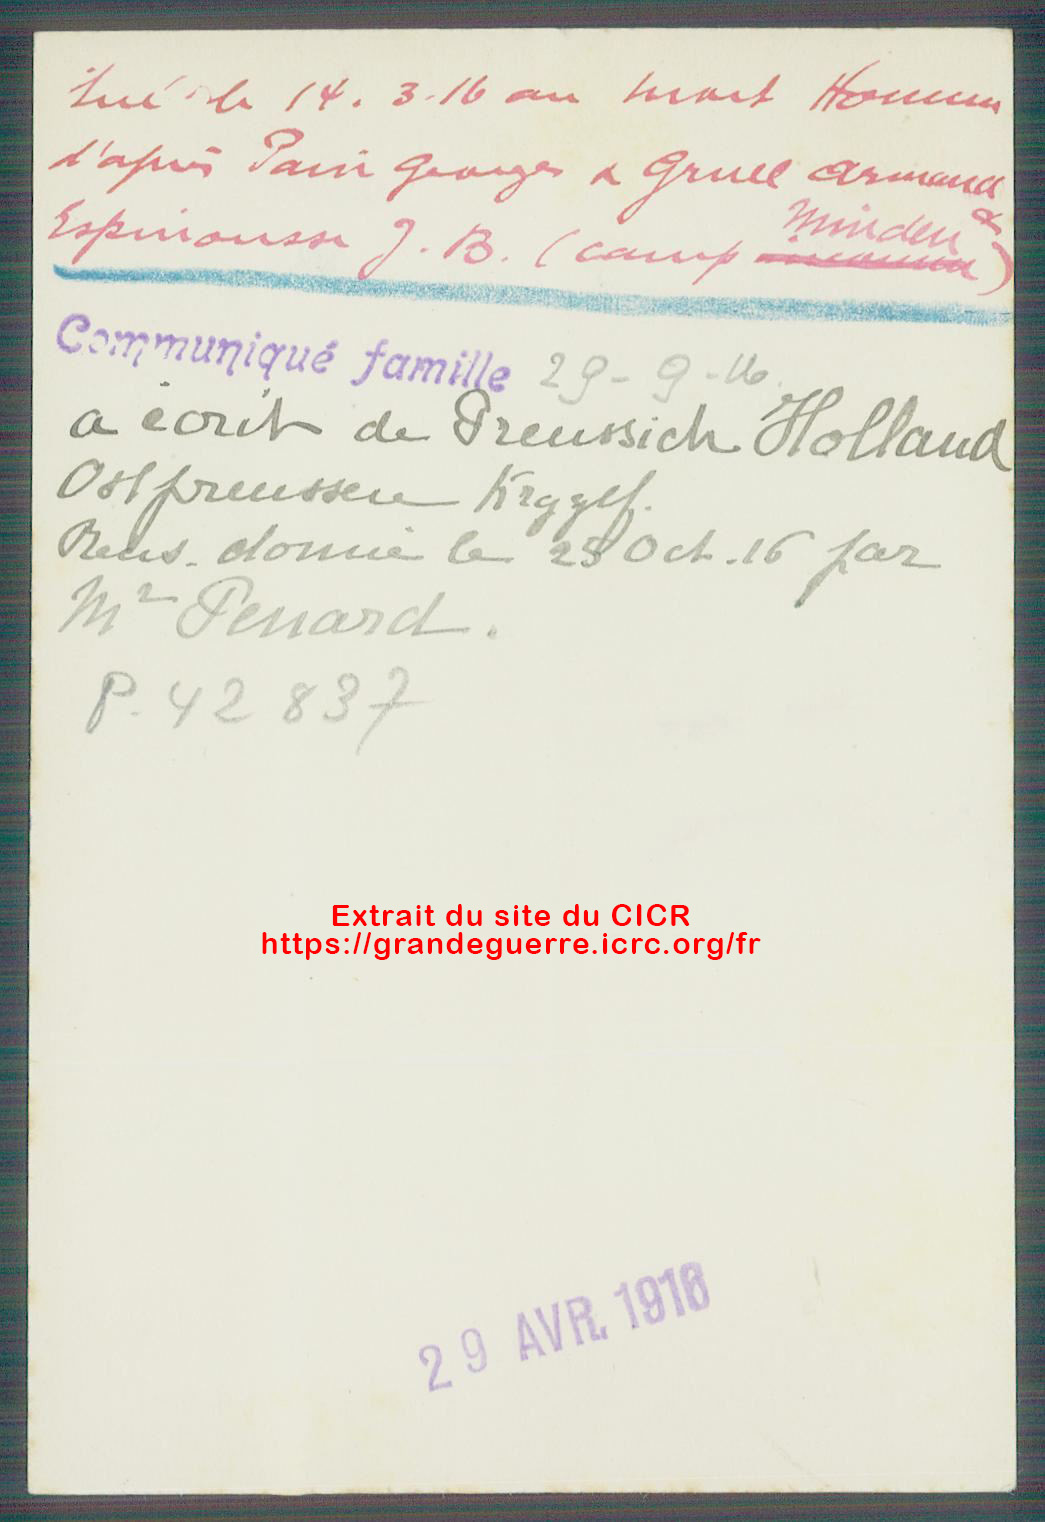 tué le 14. 3.16 au mort Homme
d'après Pain Georges & Gruel Armand &
Espinousse J. B. (camp Minden)
Communiqué famille 29-9-16.
a écrit de Preussich Holland
Ostpreussen Krggf.
Rens. donné le 25 Oct. 16 par
Mr Penard.
P. 42 837
Extrait du site du CICR
https://grandeguerre.icrc.org/fr
29 AVR. 1916